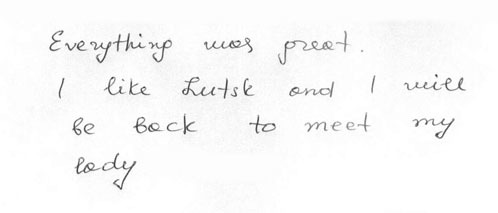 Everything was great.
I like Lutsk and I will
be back to meet my
lady